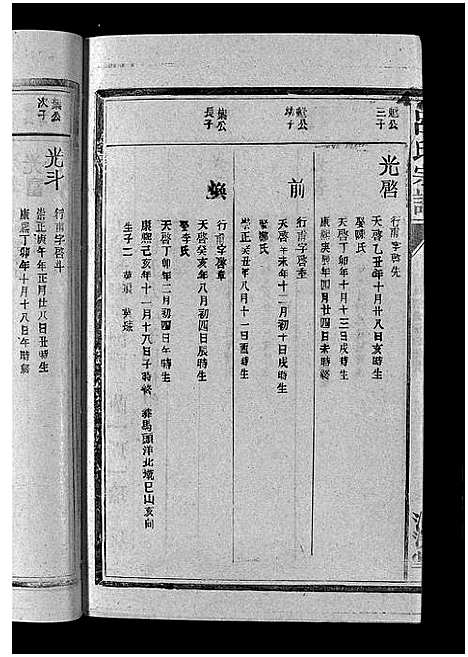 呂氏宗譜
魁公
三子
光啓
行甫字啓先
天啓乙丑年十月廿八日亥時生
娶陳氏
天啓丁卯年十月十三日戌時生
康熙庚辰年四月廿四日未時終
魁公
幼子
前
行甫字啓生
天啓辛未年十二月初十日戌時生
娶陳氏
崇正癸丑年八月十一日酉時生
葉公
長子
煥
行甫字啓章
天啓癸亥年八月初四日辰時生
娶李氏
天啓丁卯年二月初四日午時生
康熙己亥年十一月十八日子時終 葬馬頭洋北墩巳山亥向
生子二
葉公
次子
光斗
行甫字啓斗
崇正庚午年正月廿八日丑時生
康熙丁卯年十月十八日午時終